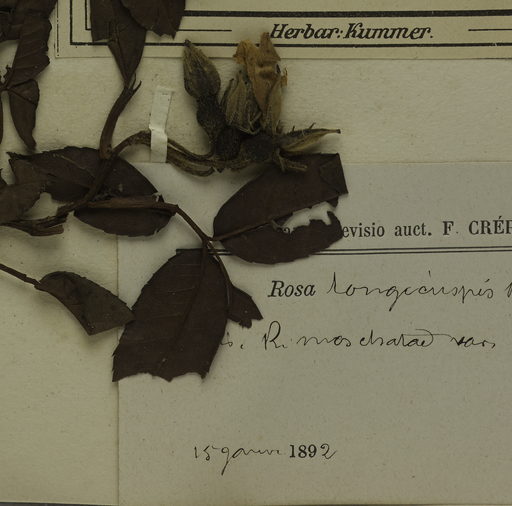 Herbar: Kummer.
evisio auct. F. CRÉP
Rosa longicuspis
s. R. moschatae var.
15 janv. 1892